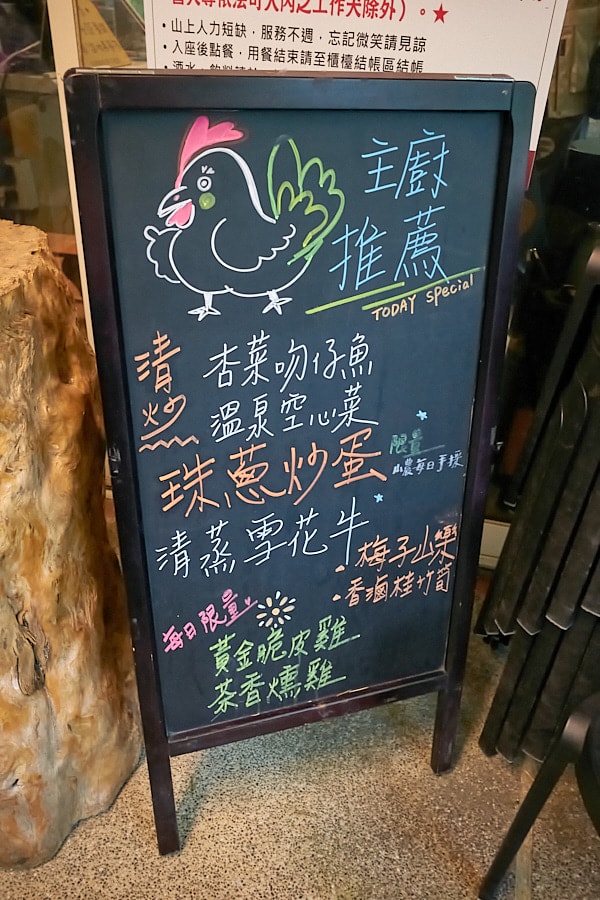 當犬等依法可入內之工作犬除外）。★
• 山上人力短缺，服務不週，忘記微笑請見諒
• 入座後點餐，用餐結束請至櫃檯結帳區結帳
主廚
推薦
TODAY special
清炒
杏菜吻仔魚
溫泉空心菜
珠蔥炒蛋
限量
小農每日手採
清蒸雪花牛
• 梅子山藥
• 香滷桂竹筍
每日限量
黃金脆皮雞
茶香燻雞